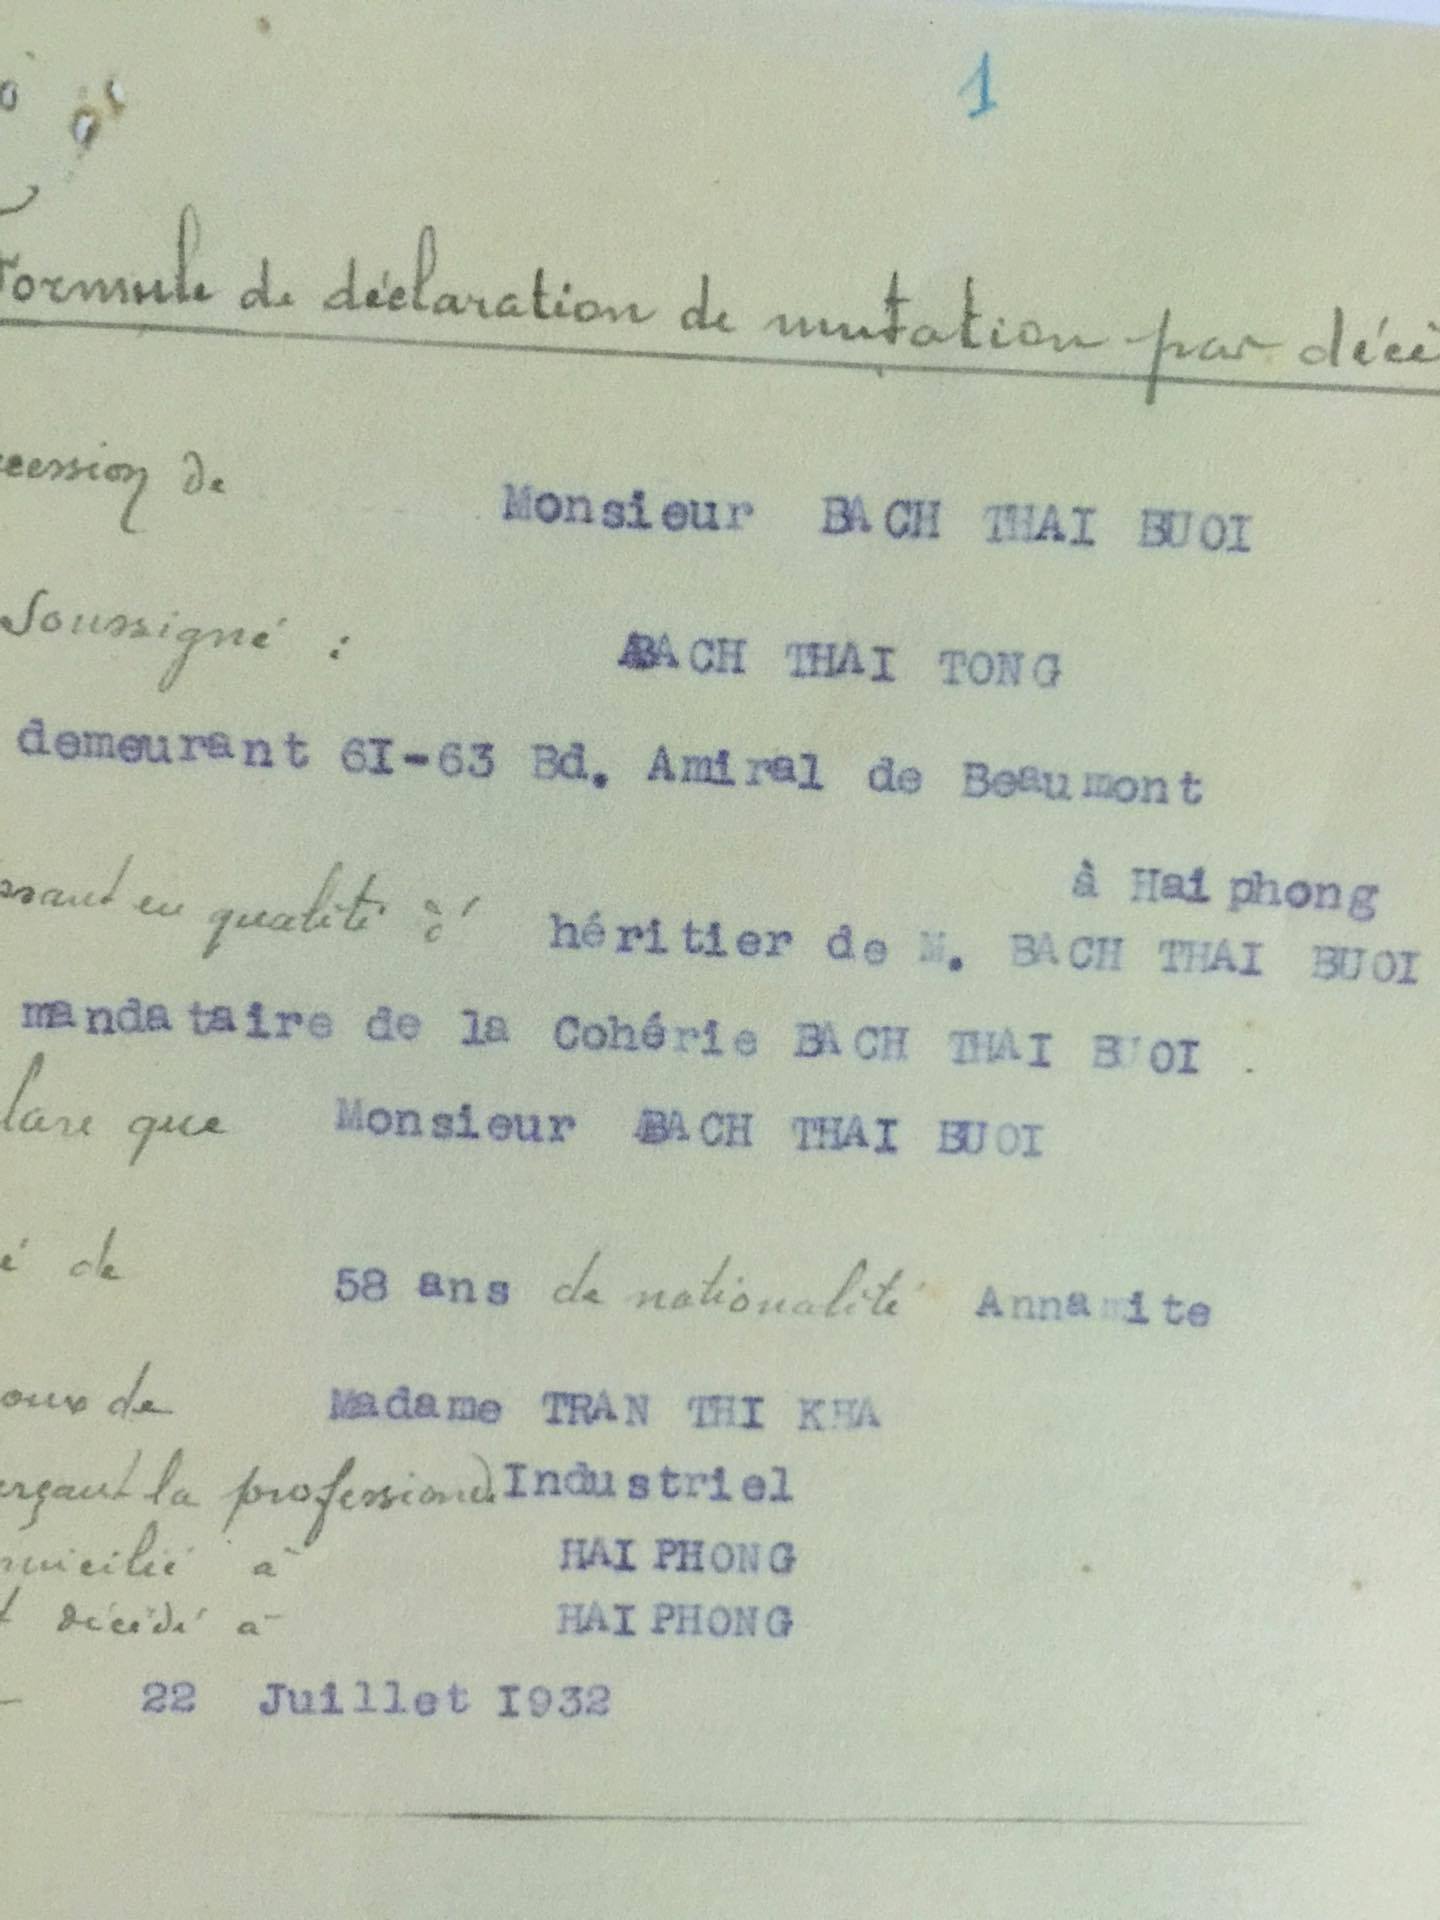 1
Formule de déclaration de mutation par décè
ccession de Monsieur BACH THAI BUOI
Soussigné : BACH THAI TONG
demeurant 6I-63 Bd. Amiral de Beaumont
à Haiphong
ssant en qualité d' héritier de M. BACH THAI BUOI
mandataire de la Cohérie BACH THAI BUOI .
lare que Monsieur BACH THAI BUOI
é de 58 ans de nationalité Annamite
oux de Madame TRAN THI KHA
erçant la profession d. Industriel
micilié à HAIPHONG
t décédé à HAIPHONG
22 Juillet I932